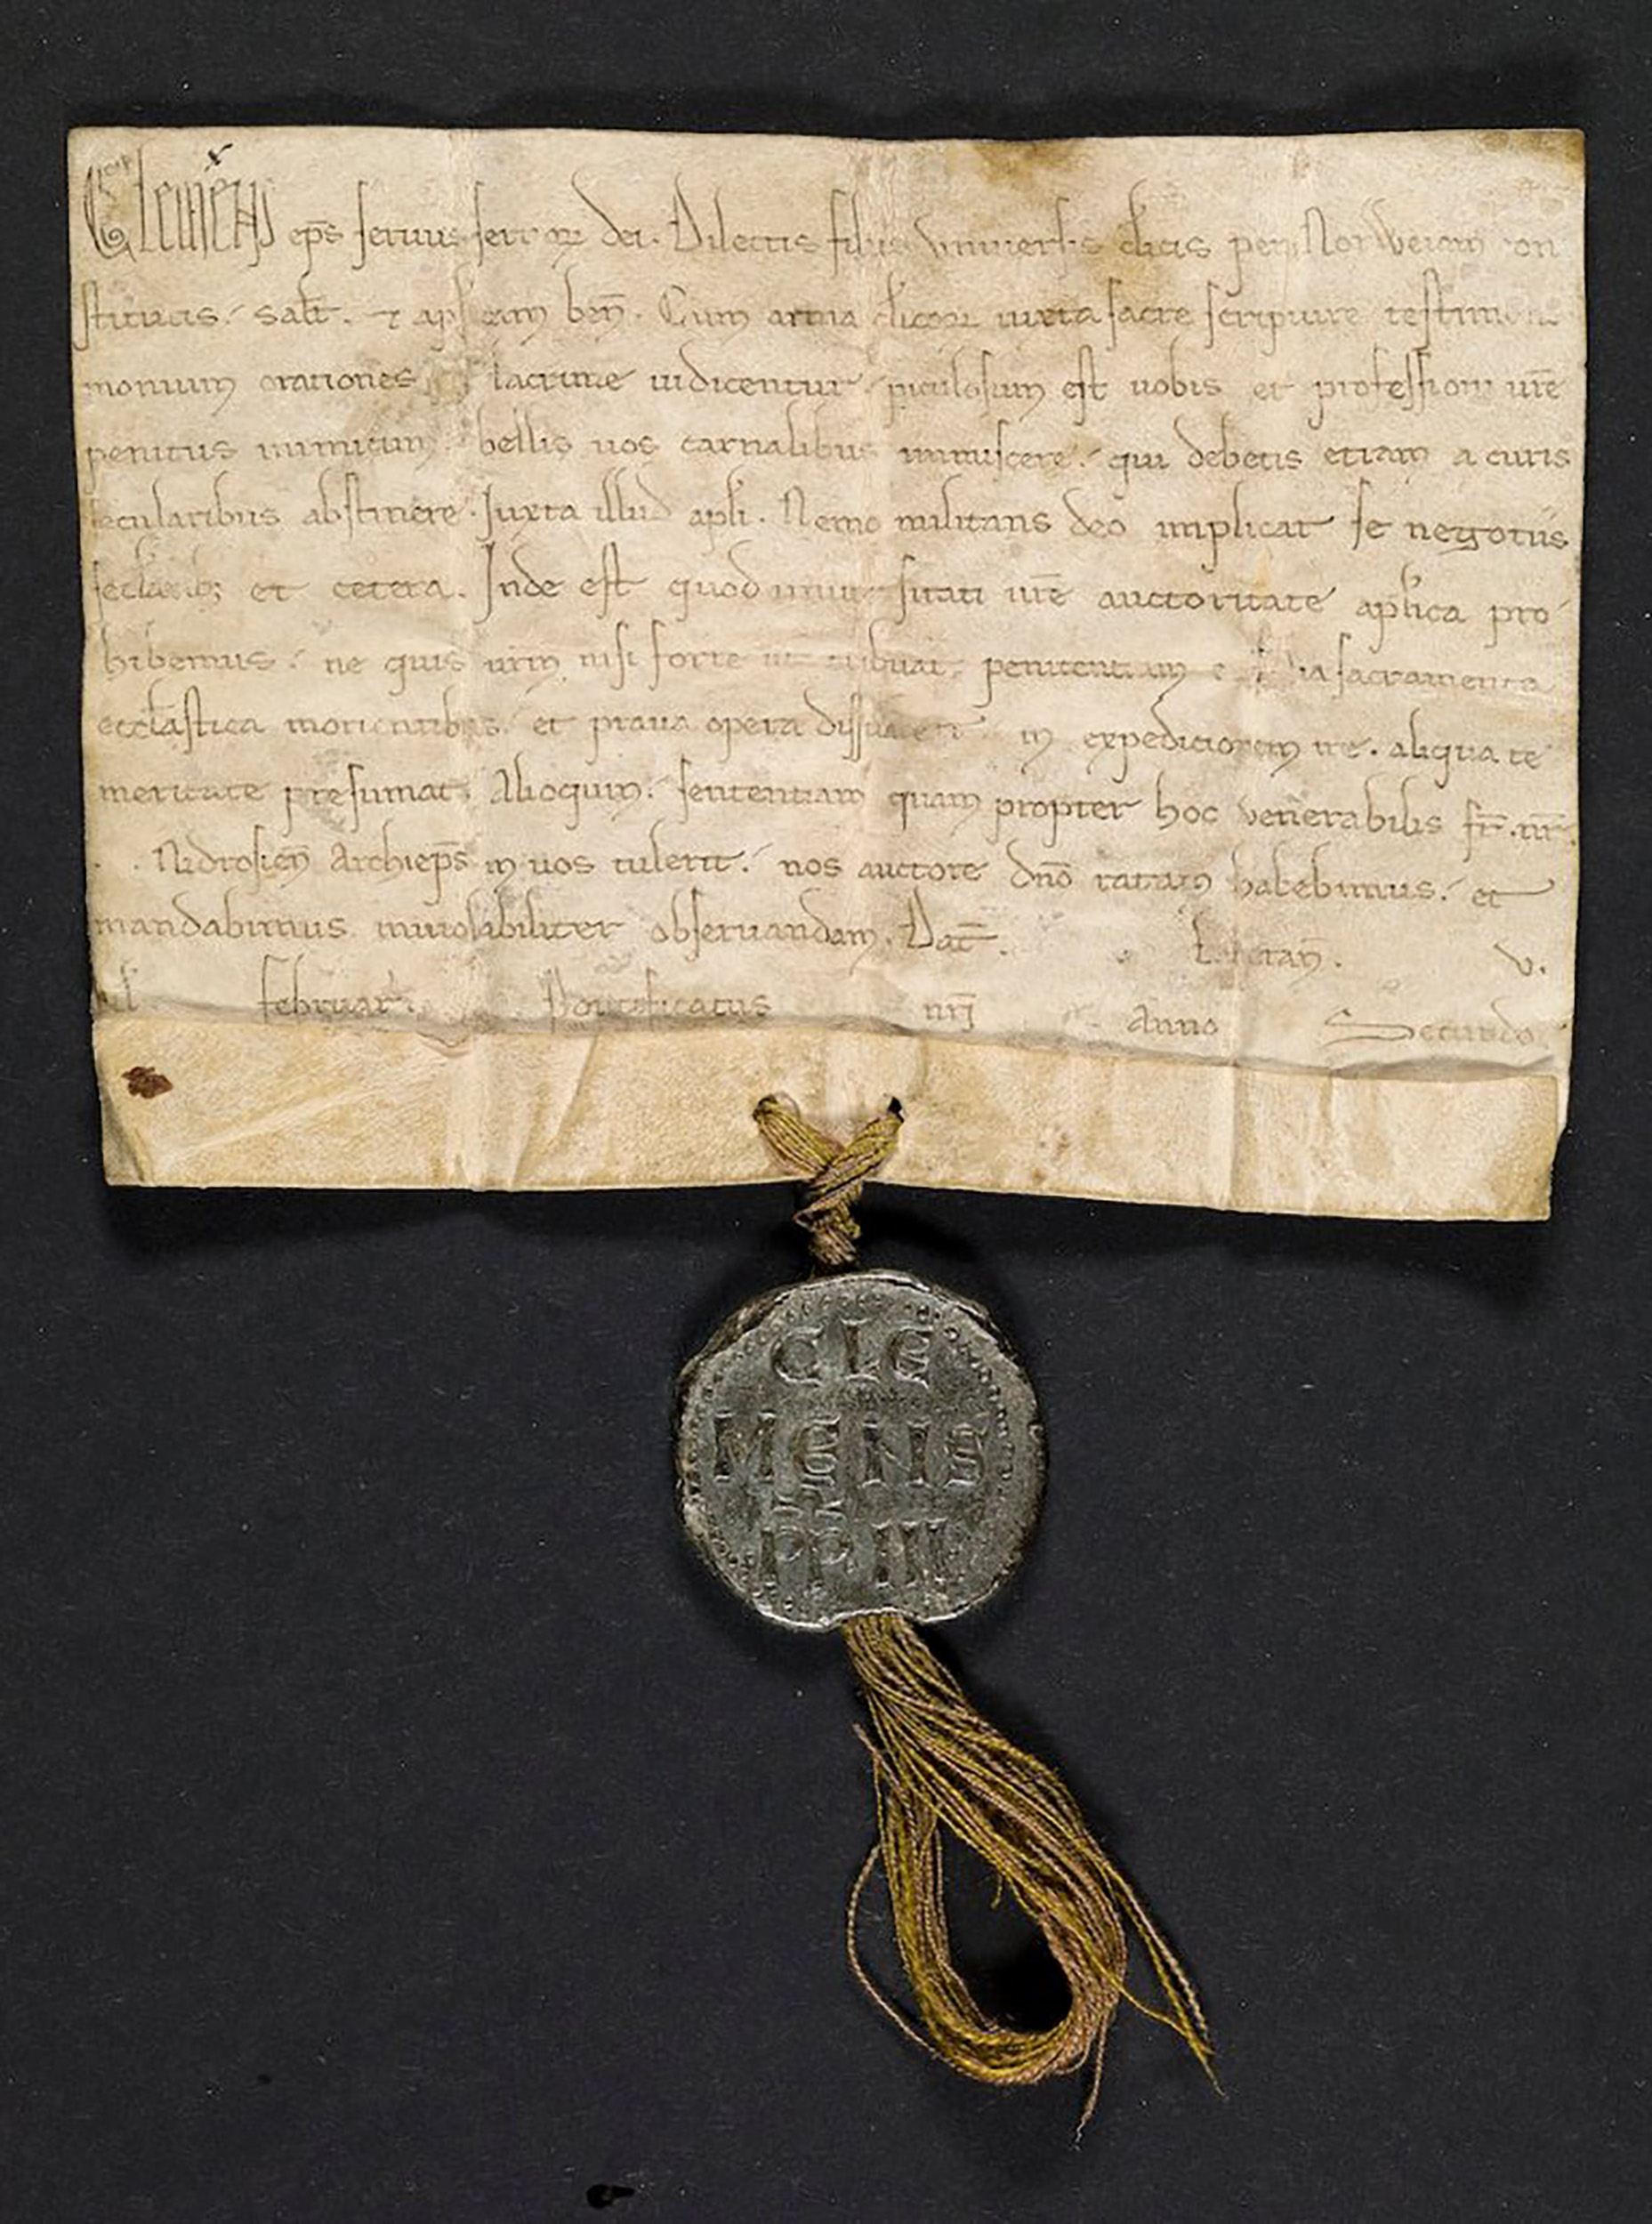 Clemens eps seruus seruoꝝ dei. Dilectis filiis vniuersis clicis per Norweiam con
stitutis. salt. ⁊ aplicam ben. Cum arma clicoꝝ iuxta sacre scripture testimoni
monium orationes lacrime iudicentur piculosum est uobis et professioni ure
penitus inimicum. bellis uos carnalibus inmiscere. qui debetis etiam a curis
secularibus abstinere. Juxta illud apli. Nemo militans deo implicat se negotiis
seclarib; et cetera. Inde est quod uniuersitati ure auctoritate aplica pro
hibemus. ne quis urm nisi forte ut tribuat penitentiam sacramenta
ecclastica morientibus. et praua opera dissuadeat in expeditionem ire. aliqua te
meritate presumat. Alioquin. sententiam quam propter hoc venerabilis fr. nr.
. . Nidrosien Archieps in uos tulerit. nos auctore dno ratam habebimus. et
mandabimus inuiolabiliter obseruandam. Dat. Lateran. v.
kl februar. Pontificatus nri Anno Secundo.
CLE
MENS
PP III